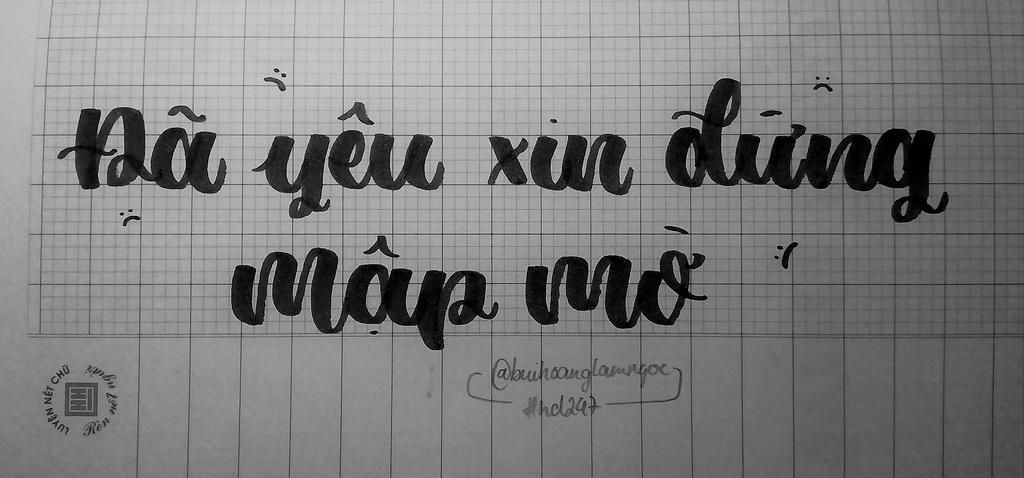 Đã yêu xin đừng
mập mờ
@buihoanglamngoc
#nd247
LUYỆN NÉT CHỮ
Rèn nên người